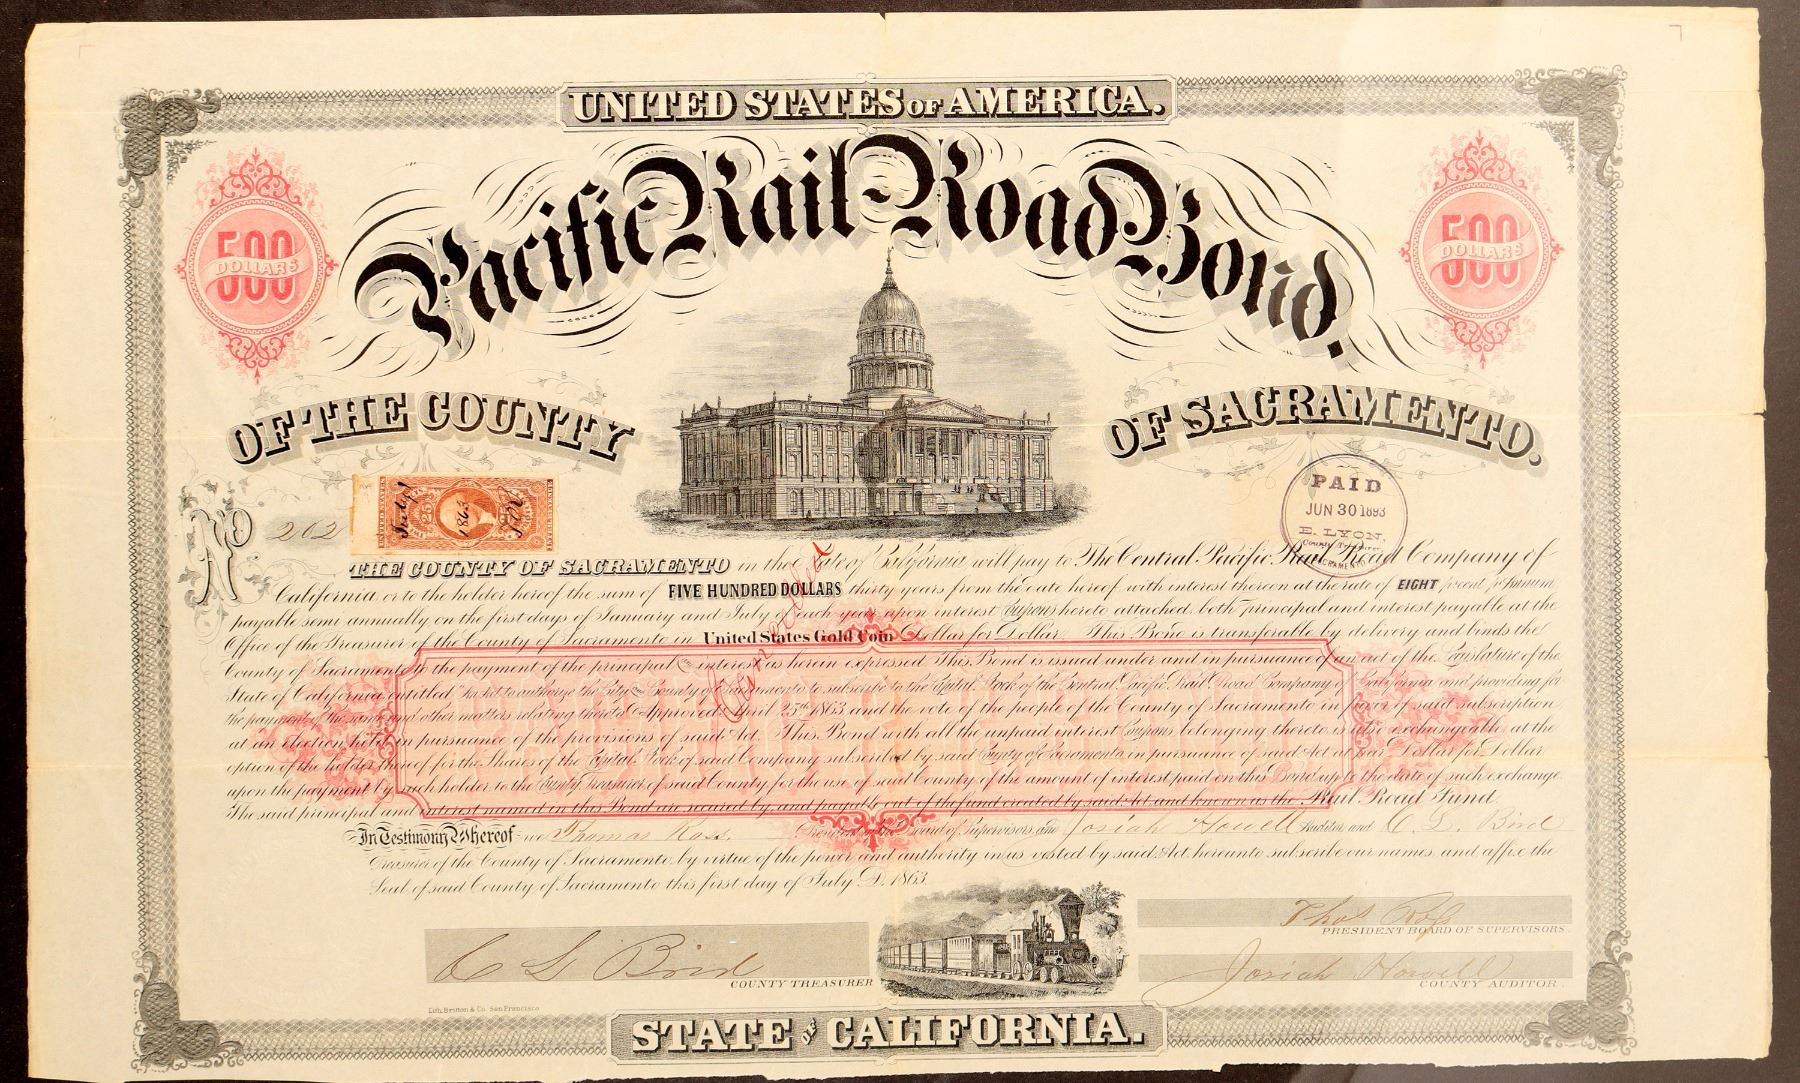 UNITED STATES OF AMERICA.
Pacific Rail-Road Bond.
500 DOLLARS
500 DOLLARS
OF THE COUNTY
OF SACRAMENTO.
PAID
JUN 30 1893
E. LYON,
County
No 202
25
1863
THE COUNTY OF SACRAMENTO in the State of California will pay to The Central Pacific Rail Road Company of
California or to the holder hereof the sum of FIVE HUNDRED DOLLARS thirty years from the date hereof with interest thereon at the rate of EIGHT pr cent pr Annum,
payable semi annually on the first days of January and July of each year, upon interest Coupons hereto attached, both principal and interest payable at the
Office of the Treasurer of the County of Sacramento in United States Gold Coin Dollar for Dollar. This Bond is transferable by delivery and binds the
County of Sacramento to the payment of the principal and interest as herein expressed. This Bond is issued under and in pursuance of an act of the Legislature of the
State of California entitled "An Act to authorize the City and County of Sacramento to subscribe to the Capital Stock of the Central Pacific Rail Road Company of California and providing for
the payment of the same and other matters relating thereto" Approved April 25th 1863 and the vote of the people of the County of Sacramento in favor of said subscription,
at an election held in pursuance of the provisions of said Act. This Bond with all the unpaid interest Coupons belonging thereto is also exchangeable at the
option of the holder thereof for the Shares of the Capital Stock of said Company subscribed by said County of Sacramento in pursuance of said Act at par Dollar for Dollar
upon the payment by such holder to the County Treasurer of said County for the use of said County of the amount of interest paid on this Bond up to the date of such exchange.
The said principal and interest named in this Bond are secured by, and payable out of the fund created by said Act and known as the Rail Road Fund.
In Testimony Whereof we Thomas Ross, President of the Board of Supervisors, and Josiah Howell Auditor and C. L. Bird
Treasurer of the County of Sacramento by virtue of the power and authority in us vested by said Act hereunto subscribe our names and affix the
Seal of said County of Sacramento this first day of July A.D. 1863.
Thos Ross
PRESIDENT BOARD OF SUPERVISORS.
C L Bird
COUNTY TREASURER
Josiah Howell
COUNTY AUDITOR.
Lith. Britton & Co. San Francisco
STATE OF CALIFORNIA.